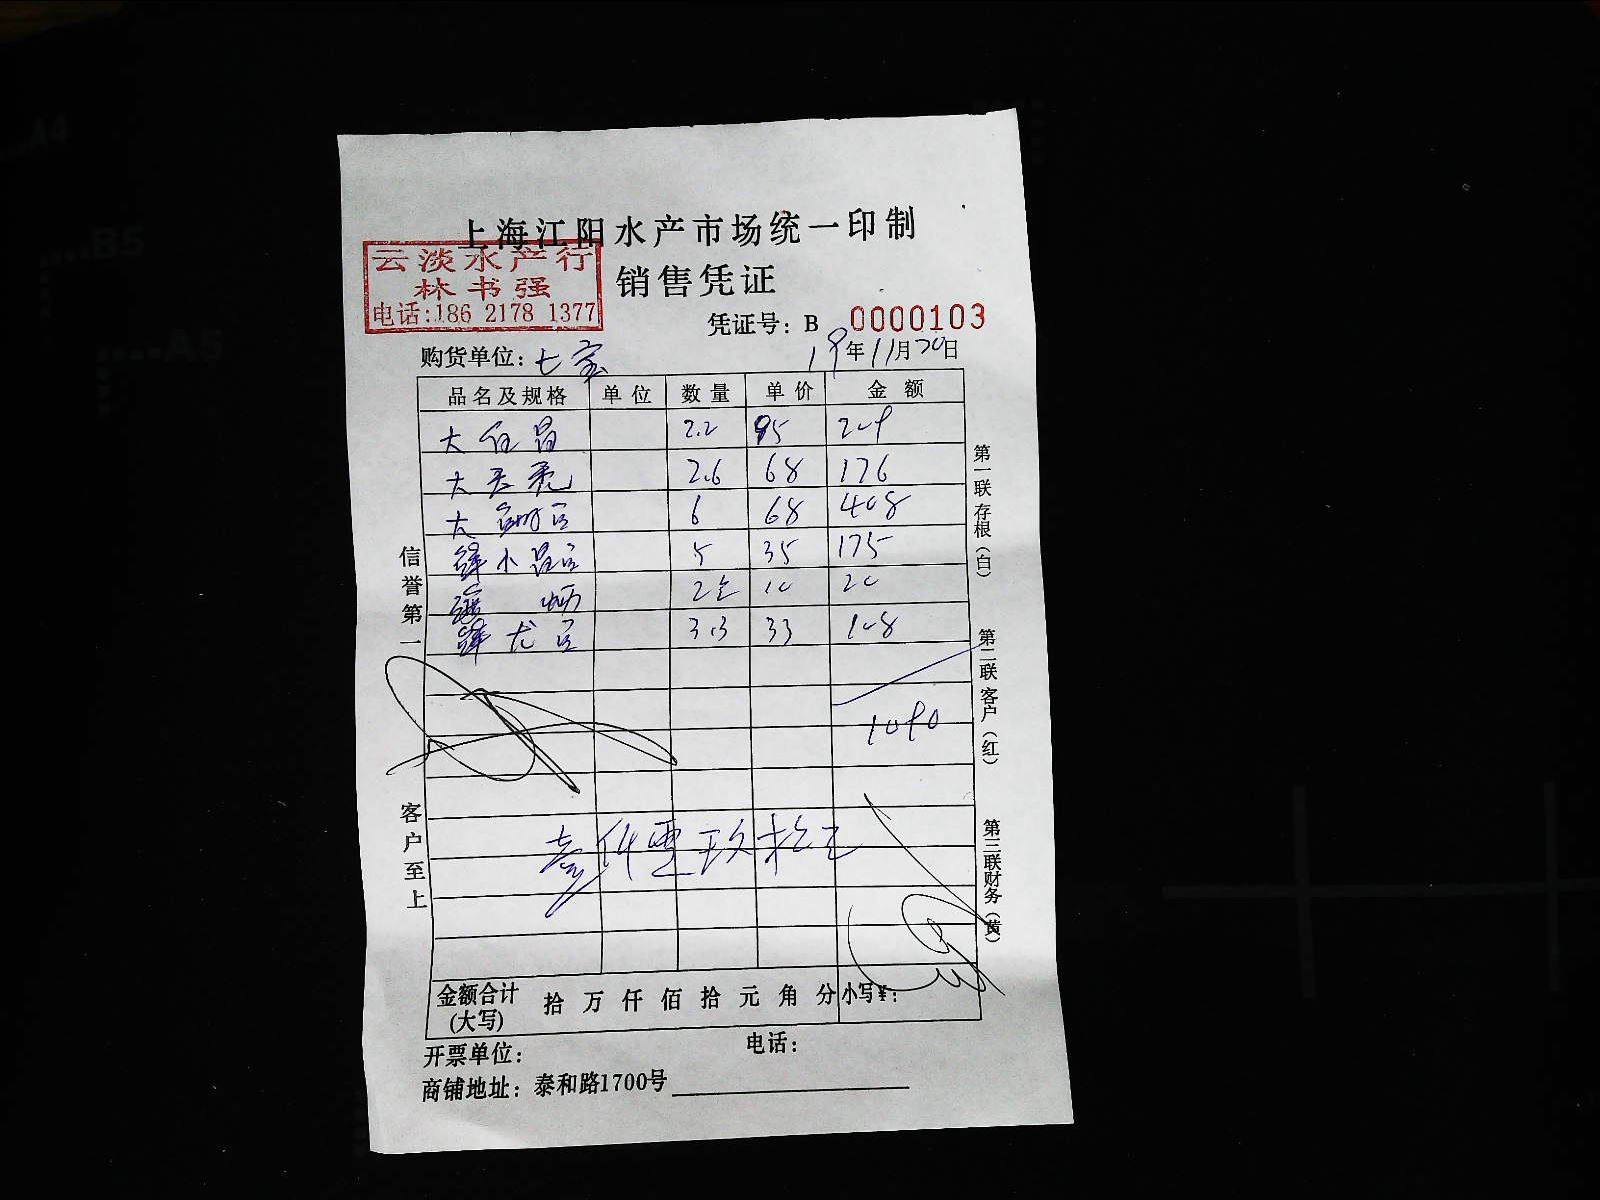 上海江阳水产市场统一印制
云淡水产行
林书强
电话:186 2178 1377
销售凭证
凭证号: B 0000103
购货单位: 七宝
19年11月20日
品名及规格 单位 数量 单价 金额
大白昌 2.2 95 209
大 2.6 68 176
大 6 68 408
小昌 5 35 175
2 10 20
3.3 33 108
1090
壹仟零玖拾元
信誉第一
客户至上
第一联 存根(白)
第二联 客户(红)
第三联 财务(黄)
金额合计(大写) 拾 万 仟 佰 拾 元 角 分 小写¥:
开票单位: 电话:
商铺地址: 泰和路1700号